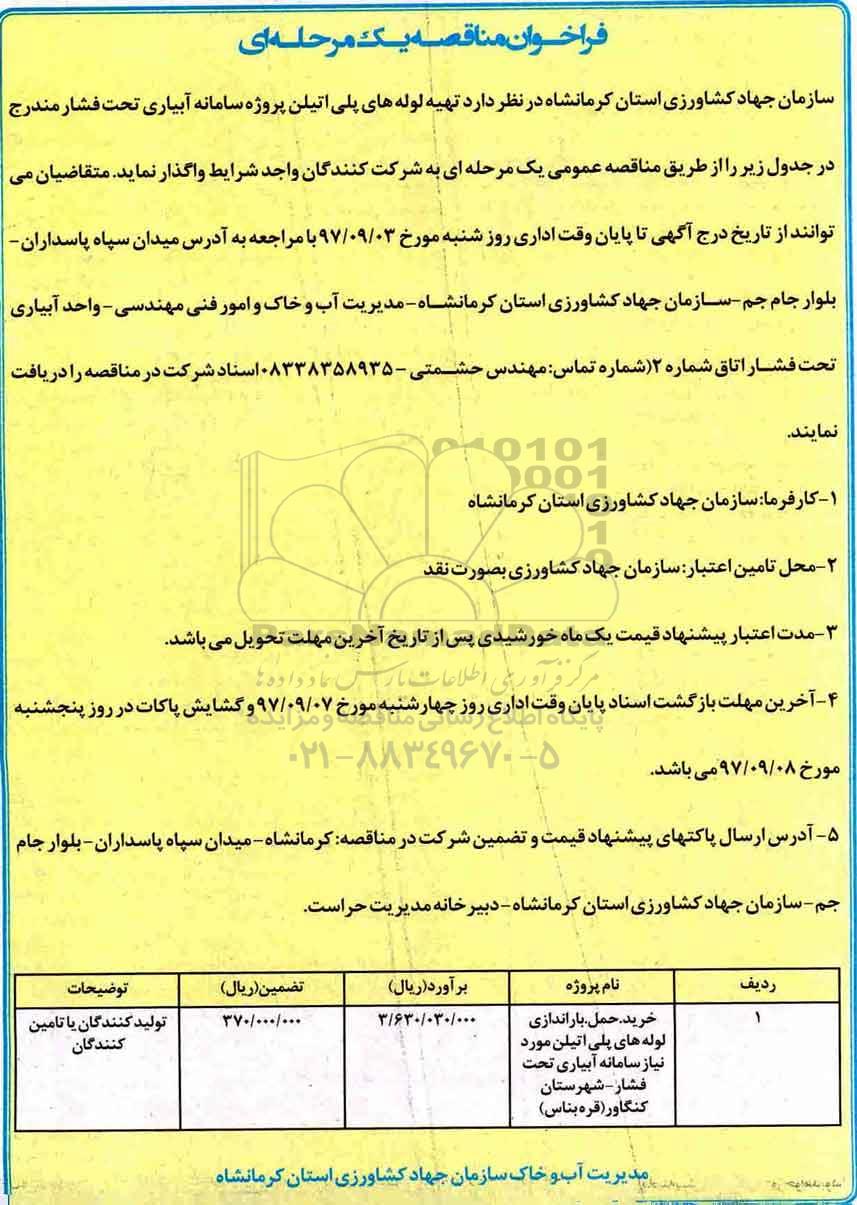 فراخوان مناقصه یک مرحله ای
سازمان جهاد کشاورزی استان کرمانشاه در نظر دارد تهیه لوله های پلی اتیلن پروژه سامانه آبیاری تحت فشار مندرج
در جدول زیر را از طریق مناقصه عمومی یک مرحله ای به شرکت کنندگان واجد شرایط واگذار نماید. متقاضیان می
توانند از تاریخ درج آگهی تا پایان وقت اداری روز شنبه مورخ ۹۷/۰۹/۰۳ با مراجعه به آدرس میدان سپاه پاسداران-
بلوار جام جم-سازمان جهاد کشاورزی استان کرمانشاه-مدیریت آب و خاک و امور فنی مهندسی-واحد آبیاری
تحت فشار اتاق شماره ۲(شماره تماس: مهندس حشمتی -۰۸۳۳۸۳۵۸۹۳۵ اسناد شرکت در مناقصه را دریافت
نمایند.
۱-کارفرما: سازمان جهاد کشاورزی استان کرمانشاه
۲-محل تامین اعتبار: سازمان جهاد کشاورزی بصورت نقد
۳-مدت اعتبار پیشنهاد قیمت یک ماه خورشیدی پس از تاریخ آخرین مهلت تحویل می باشد.
مرکز فرآوری اطلاعات پارس نماد داده ها
۴-آخرین مهلت بازگشت اسناد پایان وقت اداری روز چهارشنبه مورخ ۹۷/۰۹/۰۷ و گشایش پاکات در روز پنجشنبه
پایگاه اطلاع رسانی مناقصه و مزایده
۰۲۱-۸۸۳۴۹۶۷۰-۵
مورخ ۹۷/۰۹/۰۸ می باشد.
۵- آدرس ارسال پاکتهای پیشنهاد قیمت و تضمین شرکت در مناقصه: کرمانشاه-میدان سپاه پاسداران-بلوار جام
جم-سازمان جهاد کشاورزی استان کرمانشاه-دبیرخانه مدیریت حراست.
ردیف نام پروژه برآورد(ریال) تضمین(ریال) توضیحات
۱ خرید.حمل.باراندازی ۳/۶۳۰/۰۳۰/۰۰۰ ۳۷۰/۰۰۰/۰۰۰ تولید کنندگان یا تامین
لوله های پلی اتیلن مورد کنندگان
نیاز سامانه آبیاری تحت
فشار-شهرستان
کنگاور(قره بناس)
مدیریت آب و خاک سازمان جهاد کشاورزی استان کرمانشاه